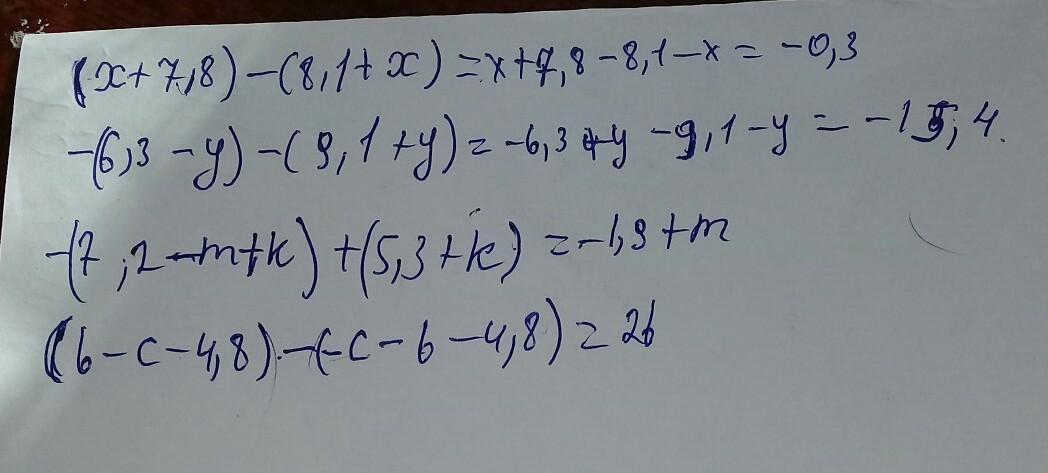 (x+7,8)-(8,1+x)=x+7,8-8,1-x=-0,3
-(6,3-y)-(9,1+y)=-6,3+y-9,1-y=-15,4.
-(7,2-m+k)+(5,3+k)=-1,9+m
(b-c-4,8)-(-c-b-4,8)=2b